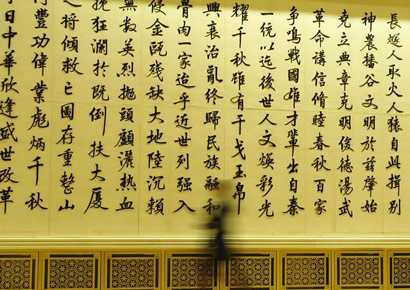 人取火人猿自此揖别
神農播谷文明於兹肇始
堯立典章克明俊德湯武
革命講信脩睦春秋百家
争鳴戰國雄才輩出自秦
一統以近後世人文焕彩光
耀千秋雖有干戈玉帛
興衰治亂終歸民族融和
骨肉一家迨乎近世列强入
侵金甌殘缺大地陸沉賴
無數英烈抛頭顱灑熱血
挽狂瀾於既倒扶大厦
之將傾救亡圖存重整山
河豐功偉業彪炳千秋
日中華欣逢盛世改革